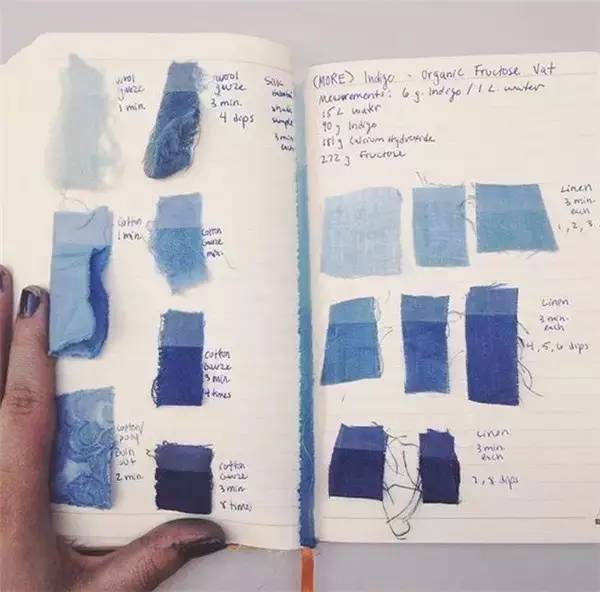 wool
gauze
1 min.
wool
gauze
3 min.
4 dips
Silk
sample
3 min
each
cotton
1 min.
cotton
gauze
cotton
gauze
3 min.
4 times
cotton/
poly
2 min.
cotton
gauze
3 min
8 times
(MORE) Indigo - Organic Fructose Vat
Measurements: 6 g. Indigo / 1 L. water
15 L water
90 g Indigo
181 g Calcium Hydroxide
272 g Fructose
Linen
3 min.
each
1, 2, 3
Linen
3 min.
each
4, 5, 6 dips
Linen
3 min.
each
7, 8 dips